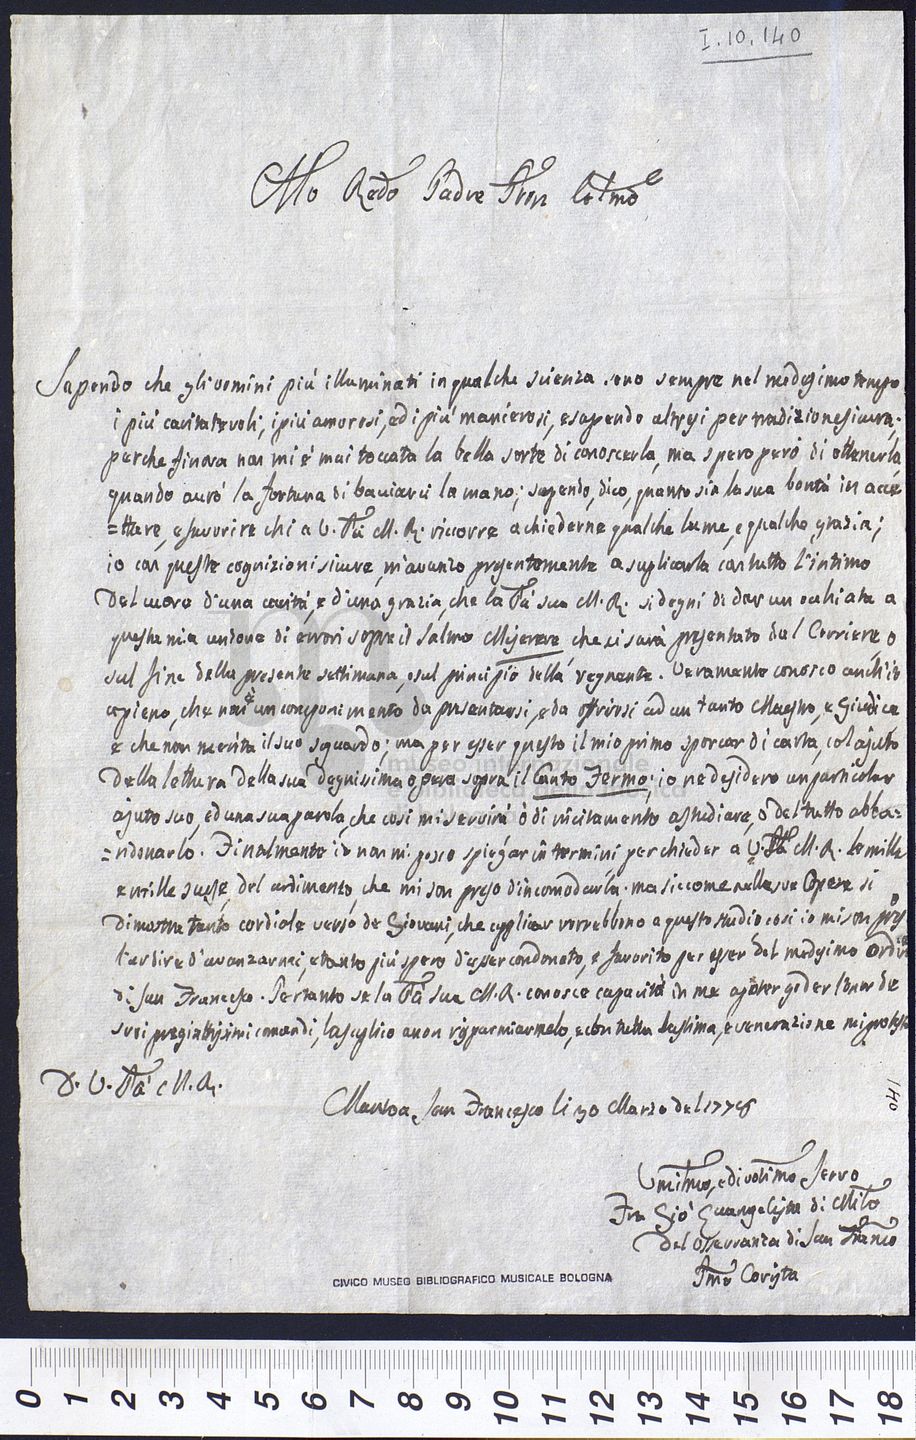 I.10.140
Mto Redo Padre Pron Colmo
Sapendo che gli uomini più illuminati in qualche scienza sono sempre nel medesimo tempo
i più caritatevoli, i più amorosi, ed i più manierosi, e sapendo altresi per tradizione sicura,
perche finora non mi è mai toccata la bella sorte di conoscerla, ma spero però di ottenerla
quando aurò la fortuna di bacciarci la mano; sapendo, dico, quanto sia la sua bontà in acce
=ttare, e favorire chi a V. Pta M. R. riccorre a chiederne qualche lume, e qualche grazia;
io con queste cognizioni sicure, m'avanzo presentemente a suplicarla con tutto l'intimo
del cuore d'una carità, e d'una grazia, che la Pta sua M. R. si degni di dar un ochiata a
questa mia unione di errori sopra il Salmo Miserere che ci sarà presentato dal Corriere o
sul fine della presente settimana, o sul principio della vegnente. Veramente conosco anch'io
apieno, che non è un componimento da presentarsi, e da offrirsi ad un tanto Maestro, e Giudice
e che non merita il suo sguardo; ma per esser questo il mio primo sporcar di carta, col ajuto
della lettura della sua degnissima opera sopra il Canto Fermo; io ne desidero un particolar
ajuto suo, ed una sua parola, che così mi servirà ò di incitamento a studiare, ò del tutto abba-
=ndonarlo. Finalmente io non mi posso spiegar in termini per chieder a V. Pta M. R. le mille
e mille scuse, del ardimento, che mi son preso d'incomodarla. ma siccome nelle sue Opere si
dimostra tanto cordiale verso de Giovani, che appliar vorrebbono a questo studio così io mi son preso
l'ardire d'avanzarmi, e tanto più spero d'esser condonato, e favorito per esser del medesimo Ordine
di San Francesco. Pertanto se la Pta sua M. R. conosce capacità in me a poter goder l'onor de
suoi pregiattissimi comandi, la suplico a non risparmiarmelo, e con tutta la stima, e venerazione mi protesto
D. V. Pta M. R.
Mantoa San Francesco li 30 Marzo del 1776
140
Umilmo, e divotimo Servo
Fra Gio Evangelista di Milo
Del Osservanza di San Franco
Pmo Corista
museo internazionale
CIVICO MUSEO BIBLIOGRAFICO MUSICALE BOLOGNA
0 1 2 3 4 5 6 7 8 9 10 11 12 13 14 15 16 17 18